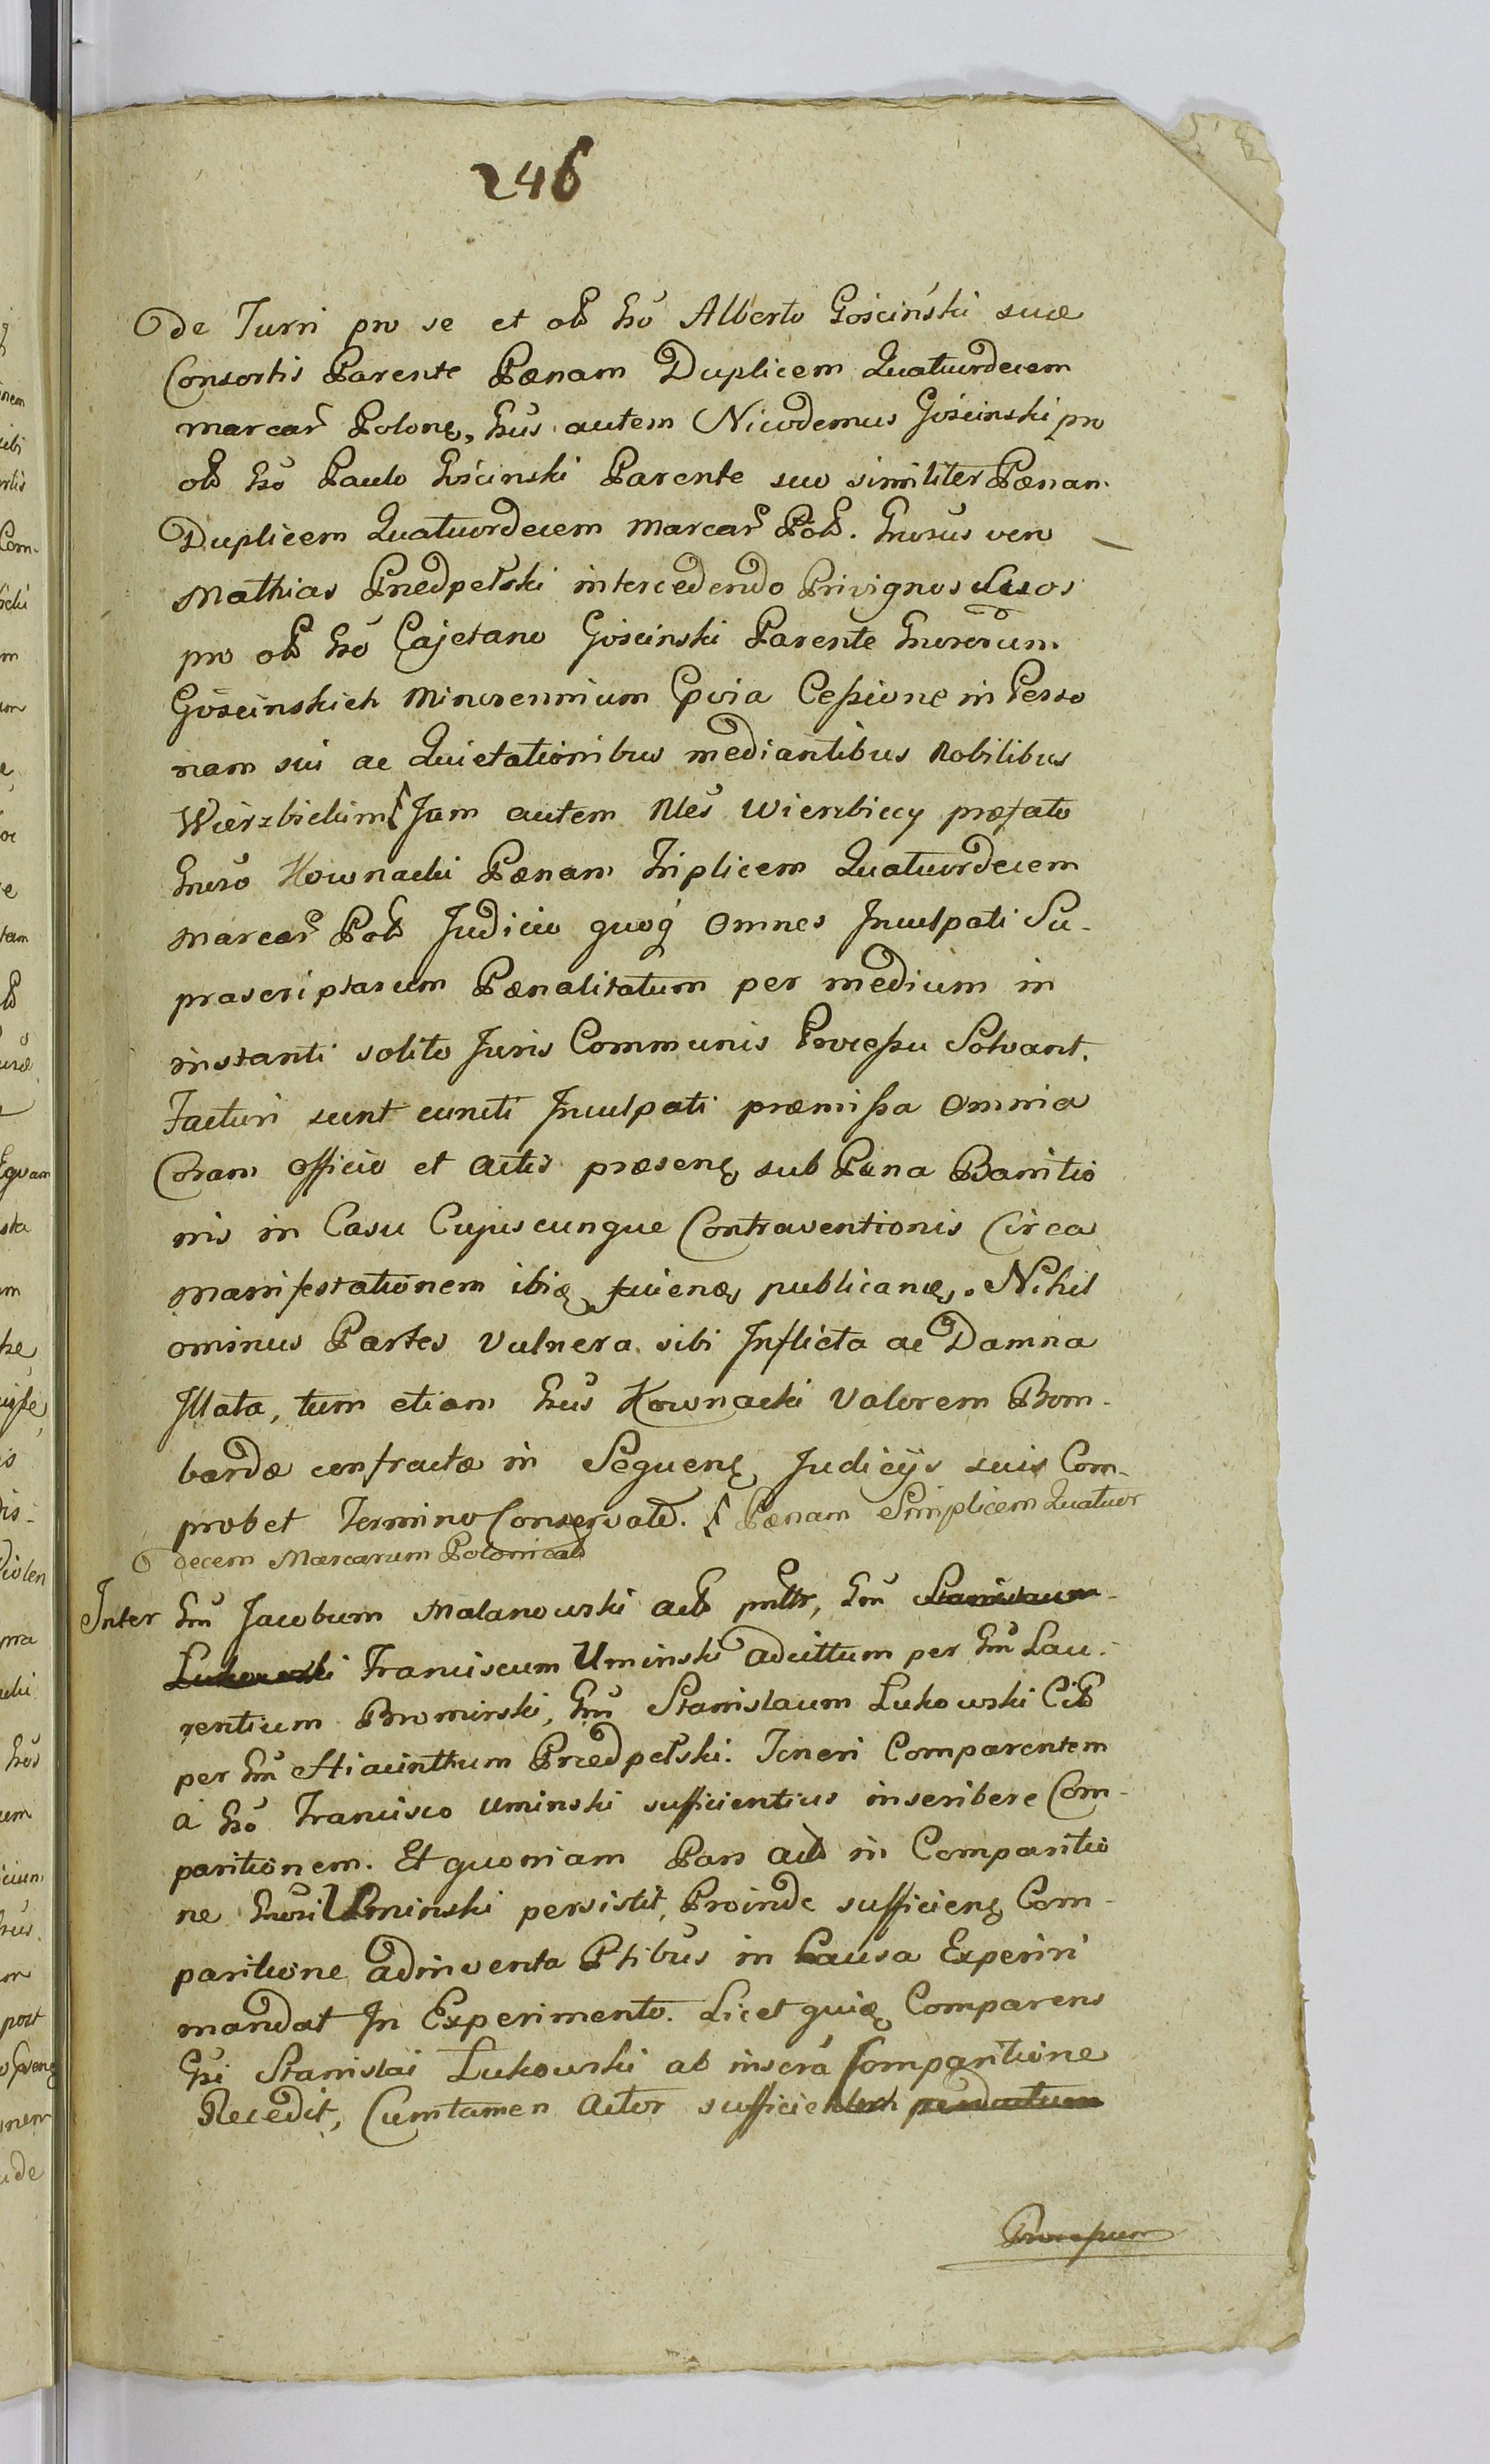 246
de Turri pro se et olb Gso Alberto Gościński suæ
Consortis Parente Pænam Duplicem Quatuordecem
marcar Polonę, Gsus autem Nicodemus Gościnski pro
olb Gso Paulo Gościnski Parente suo similiter Pænam
Duplicem Quatuordecem marcar Polb. Gnrosus vero
Mathias Przedpełski intercedendo Privignos suos
pro olb Gso Cajetano Gościnski Parente Gnrorum
Gościnskich Minorennium Cpvia Cessione in Perso
nam sui ac Quietationibus mediantibus Nobilibus
Wierzbickim Jam autem Nles Wierzbiccy præfato
Gnroso Kownacki Pænam Triplicem Quatuordecem
marcar Polb Judicio quoq omnes Inculpati Su-
prascriptarum Pænalitatum per medium in
instanti solito Juris Communis Processu Solvant.
Facturi sunt cuncti Inculpati præmissa omnia
Coram officio et Actis præsenę sub Pæna Bannitio
nis in Casu Cujuscunque Contraventionis Circa
manifestationem ibię fuienę publicanę. Nihil
ominus Partes Vulnera sibi Inflicta ac Damna
Illata, tum etiam Gsus Kownacki Valorem Bom-
bardæ confractæ in Sequenę Judicijs suis Com-
probet Termino Conservato. Pænam Simplicem Quatuor
decem Marcarum Polonicalb
Inter Gsm Jacobum Malanowski actb pnttr, Gsm Stanislaum
Lukowski Franciscum Uminski adcittum per Gsm Lau-
rentium Bromirski, Gsm Stanislaum Lukowski Citb
per Gsm Hiacinthum Przedpełski. Teneri Comparentem
à Gso Francisco Uminski sufficientius inscribere Com-
paritionem. Et quoniam Pars actb in Comparitio
ne Gnrosi Uminski persistit, Proinde sufficienę Com-
paritione adinventa Ptibus in Causa Experiri
mandat In Experimento. Licet quię Comparens
Gsi Stanislai Lukowski ab inscrá Comparitione
Recedit, Cumtamen Actor sufficientem
Processum